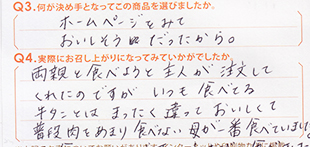 Q3.何が決め手となってこの商品を選びましたか。
ホームページをみて
おいしそうだったから。
Q4.実際にお召し上がりになってみていかがでしたか。
両親と食べようと主人が注文して
くれたのですが いつも食べてる
牛タンとは まったく違っておいしくて
普段肉をあまり食べない母が一番食べていました